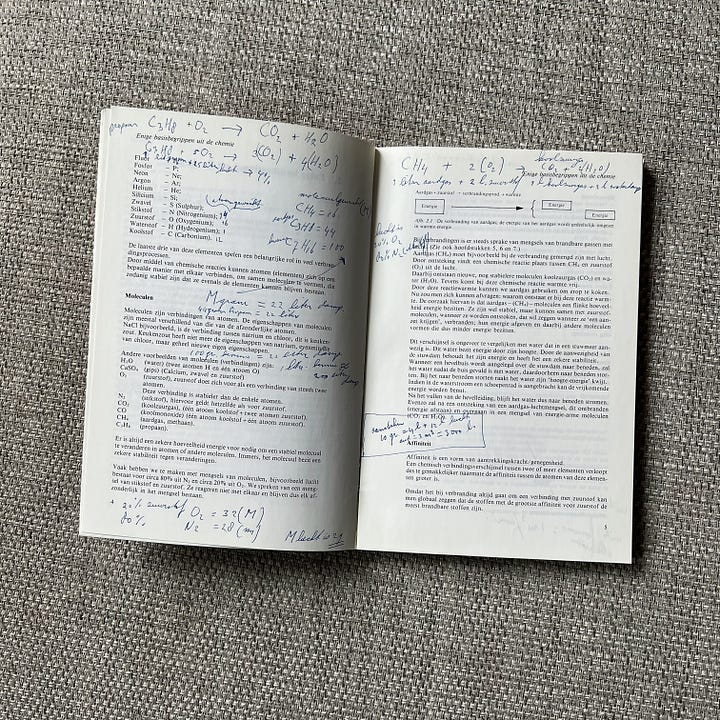 propaan C3H8 + O2 → CO2 + H2O
Enige basisbegrippen uit de chemie
C3H8 + 5O2 → 3(CO2) + 4(H2O)
Fluor
Fosfor – P;
Neon – Ne;
Argon – Ar;
Helium – He;
Silicium – Si;
Zwavel – S (Sulphur);
Stikstof – N (Nitrogenium); 14
Zuurstof – O (Oxygenium); 16
Waterstof – H (Hydrogenium); 1
Koolstof – C (Carbonium). 12
CH4 = 16
C3H8 = 44
= 100
De laatste drie van deze elementen spelen een belangrijke rol in veel verbrandingsprocessen.
Door middel van chemische reacties kunnen atomen (elementen) zich op een
bepaalde manier met elkaar verbinden, om samen moleculen te vormen, die
zodanig stabiel zijn dat ze evenals de elementen kunnen blijven bestaan.
M gram = 22 liter damp
Moleculen
44 gram propaan = 22 liter
Moleculen zijn verbindingen van atomen. De eigenschappen van moleculen
zijn meestal verschillend van die van de afzonderlijke atomen.
NaCl bijvoorbeeld, is de verbinding tussen natrium en chloor, dit is keukenzout.
Keukenzout heeft niet meer de eigenschappen van natrium, evenmin
van chloor, maar geheel nieuwe eigen eigenschappen.
100 gr. = 22 liter damp
Andere voorbeelden van moleculen (verbindingen) zijn:
H2O (water) (twee atomen H en één atoom O)
CaSO4 (gips) (Calcium, zwavel en zuurstof)
O2 (zuurstof), zuurstof doet zich voor als een verbinding van steeds twee
atomen.
Deze verbinding is stabieler dan de enkele atomen.
N2 (stikstof), hiervoor geldt hetzelfde als voor zuurstof.
CO2 (koolzuurgas), (één atoom koolstof + twee atomen zuurstof).
CO (koolmonoxide) (één atoom koolstof + één atoom zuurstof).
CH4 (aardgas, methaan).
C3H8 (propaan)
Er is altijd een zekere hoeveelheid energie voor nodig om een stabiel molecuul
te veranderen in atomen of andere moleculen. Immers, het molecuul bezit een
zekere stabiliteit tegen veranderingen.
Vaak hebben we te maken met mengsels van moleculen, bijvoorbeeld lucht
bestaat voor circa 80% uit N2 en circa 20% uit O2. We spreken van een mengsel
van stikstof en zuurstof. Ze reageren niet met elkaar en blijven dus elk afzonderlijk
in het mengsel bestaan.
+ 20% zuurstof O2 = 32 (M)
80% N2 = 28 (M)
M lucht = 29
CH4 + 2(O2) → CO2 + 2(H2O)
koolzuurgas
Enige basisbegrippen uit de chemie
1 liter aardgas + 2 l. zuurstof
Aardgas + zuurstof → verbrandingsprod. + warmte
Energie
Energie
Energie
Afb. 2.1 De verbranding van aardgas; de energie van het aardgas wordt gedeeltelijk omgezet
in warmte energie.
Bij verbrandingen is er steeds sprake van mengsels van brandbare gassen met
lucht. (Zie ook hoofdstukken 5, 6 en 7.)
Aardgas (CH4) moet bijvoorbeeld bij de verbranding gemengd zijn met lucht.
Door ontsteking vindt een chemische reactie plaats tussen CH4 en zuurstof
(O2) uit de lucht.
Daarbij ontstaan nieuwe, nog stabielere moleculen koolzuurgas (CO2) en water
(H2O). Tevens komt bij deze chemische reactie warmte vrij.
Door deze reactiewarmte kunnen we aardgas gebruiken om erop te koken.
Nu zou men zich kunnen afvragen: waarom ontstaat er bij deze reactie warmte.
De oorzaak hiervan is dat aardgas – (CH4) – moleculen een flinke hoeveelheid
energie bezitten. Ze zijn wel stabiel, maar kunnen samen met zuurstofmoleculen,
wanneer ze worden ontstoken, dat wil zeggen wanneer ze 'een aanzet
krijgen', verbranden; hun energie afgeven en daarbij andere moleculen
vormen die dus minder energie bezitten.
Dit verschijnsel is ongeveer te vergelijken met water dat in een stuwmeer aanwezig
is. Dit water heeft energie door zijn hoogte. Door de aanwezigheid van
de stuwdam behoudt het zijn energie en heeft het een zekere stabiliteit.
Wanneer een hevelbuis wordt aangelegd over de stuwdam naar beneden, zal
het water nadat de buis gevuld is met water, daardoorheen naar beneden storten.
Bij het naar beneden storten raakt het water zijn 'hoogte-energie' kwijt.
Indien in de waterstroom een schoepenrad is aangebracht kan de vrijkomende
energie worden benut.
Na het vullen van de hevelleiding, blijft het water dus naar beneden stromen.
Evenzo zal na een ontsteking van een aardgas-luchtmengsel, dit ontbranden
(energie afstaan) en overgaan in een mengsel van energie-arme moleculen
(CO2 en H2O).
Affiniteit
Affiniteit is een vorm van aantrekkingskracht/genegenheid.
Een chemisch verbrandingsverschijnsel tussen twee of meer elementen verloopt
des te gemakkelijker naarmate de affiniteit tussen de atomen van deze elementen
groter is.
Omdat het bij verbranding altijd gaat om een verbinding met zuurstof kan
men globaal zeggen dat de stoffen met de grootste affiniteit voor zuurstof de
meest brandbare stoffen zijn.
5